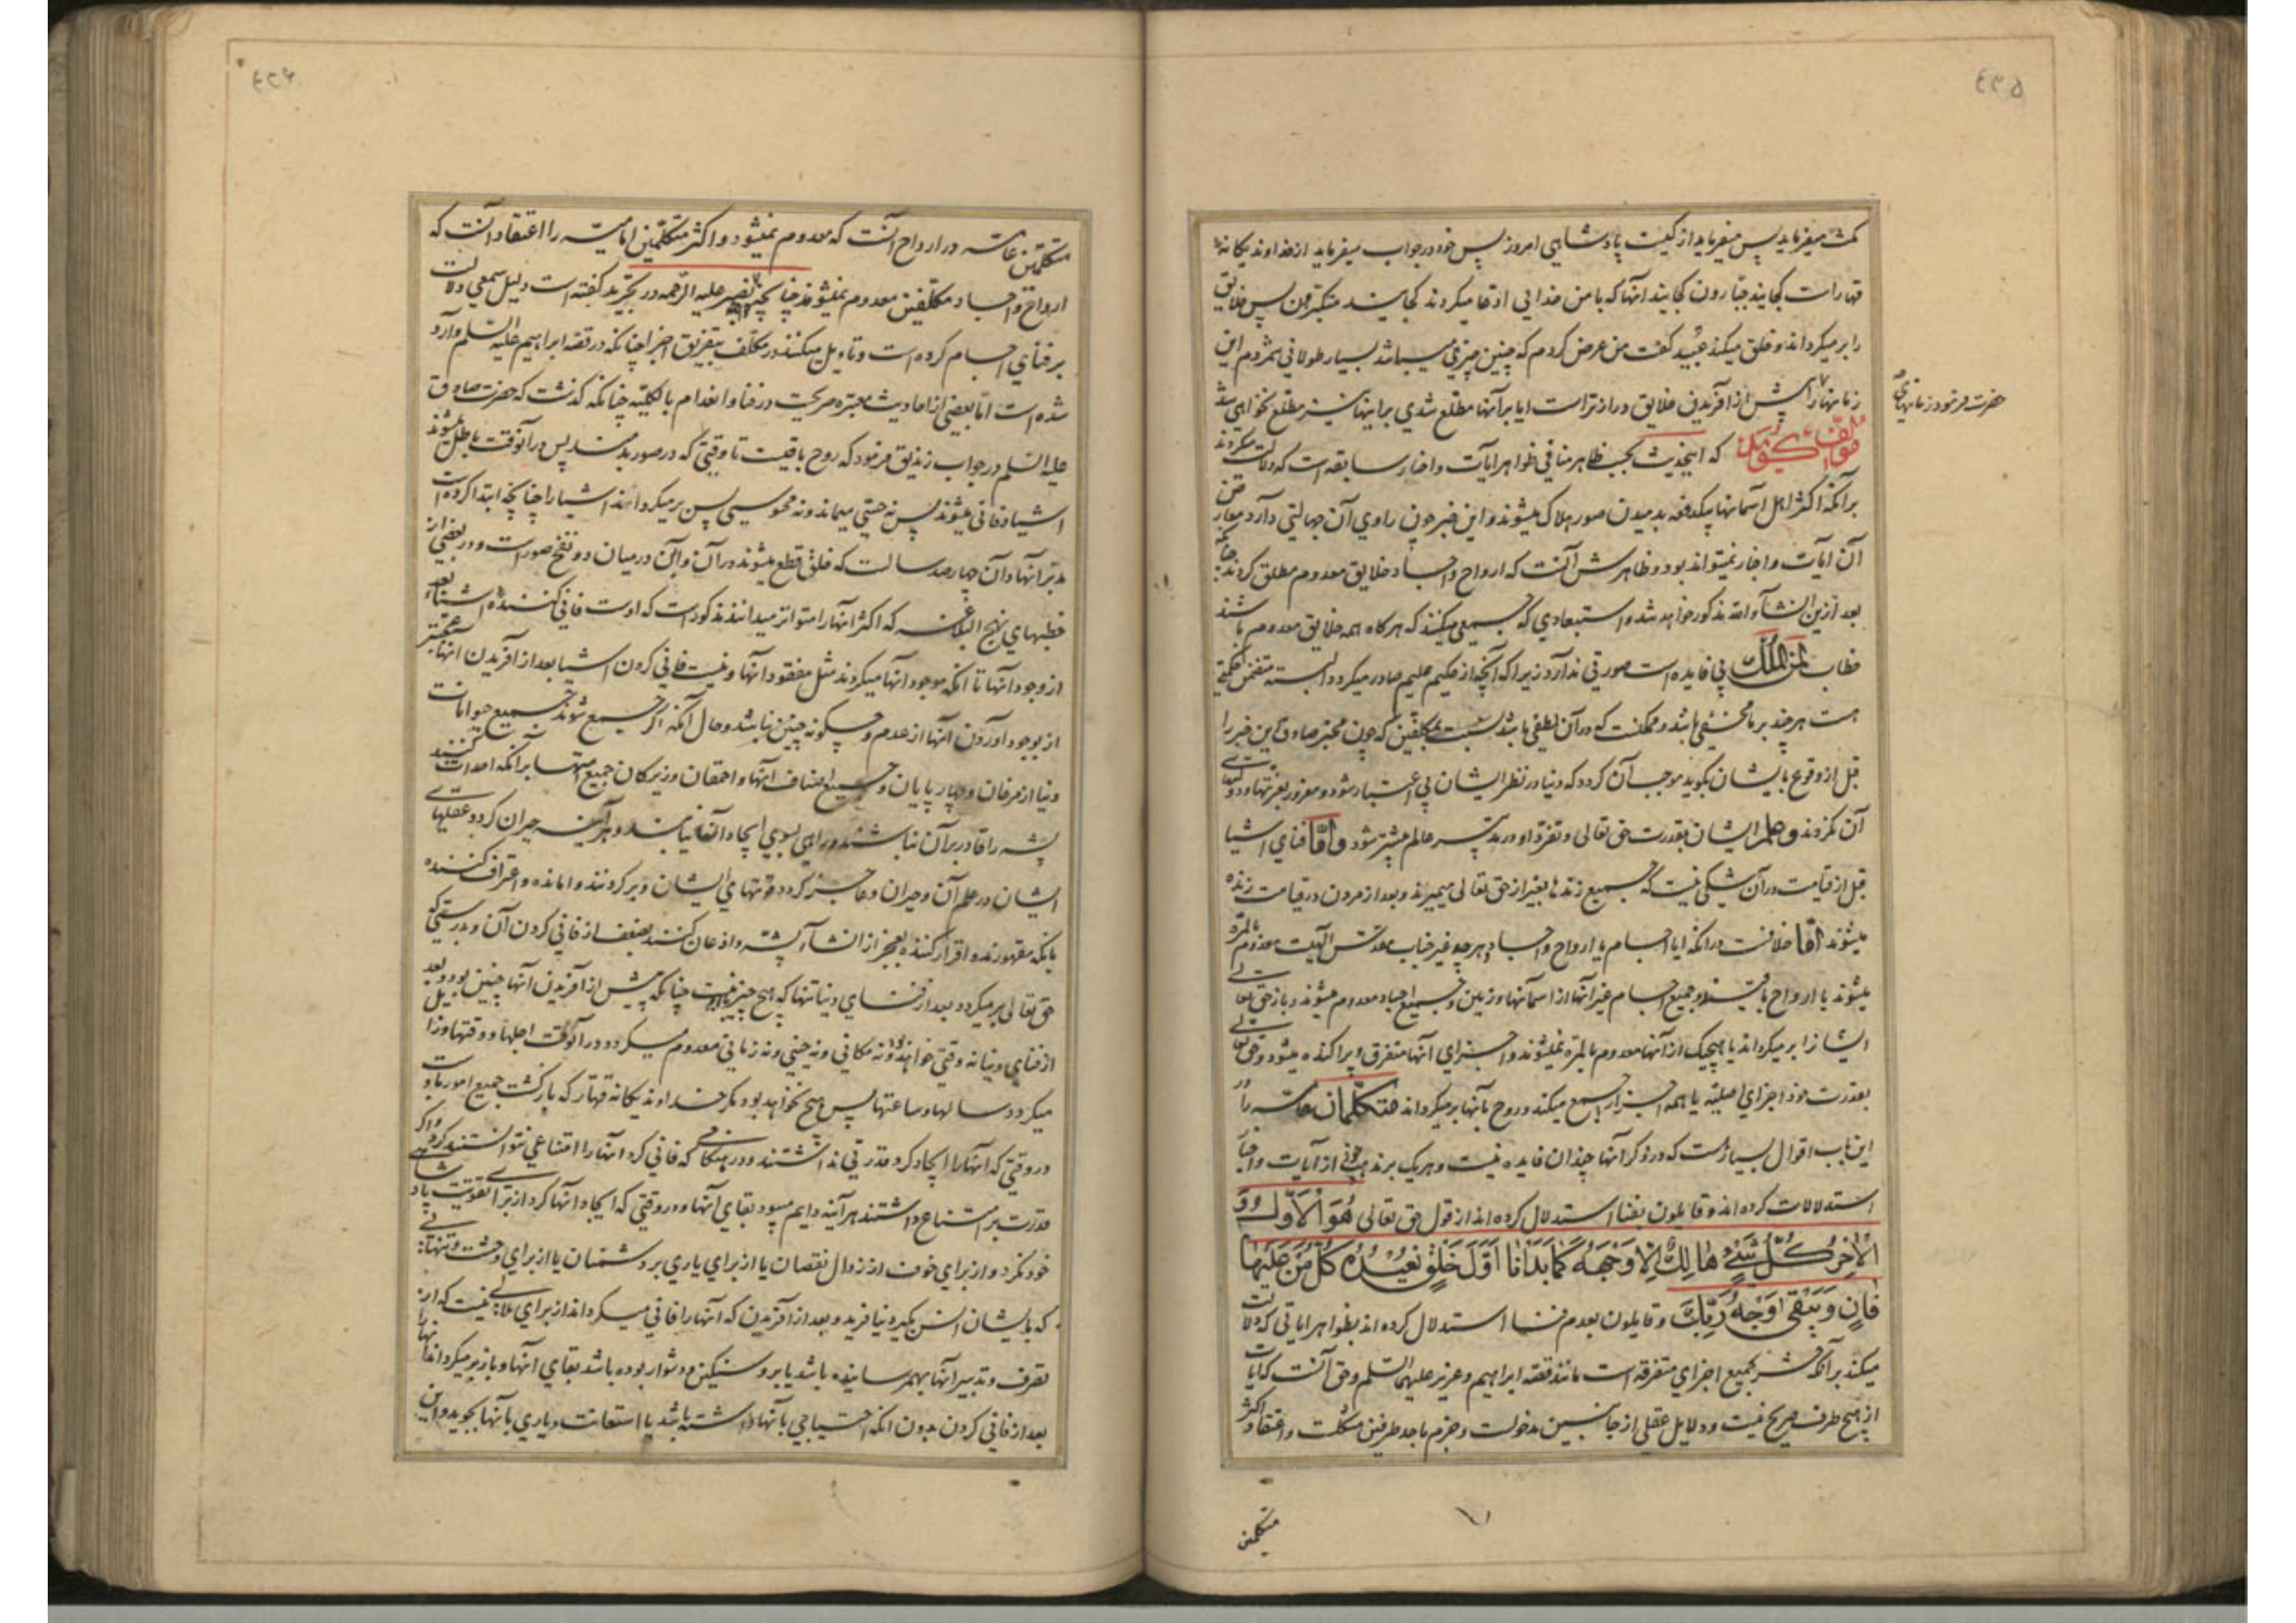 ۴۳۵
کث میفرماید پس میفرماید از کیست پادشاهی امروز پس خود در جواب میفرماید از خداوند یکانه
قهار است کجایند جبارون کجایند آنها که با من خدائی ادعا میکردند کجایند متکبرون پس خلایق
را بر میکرداند و خلق میکند عبید کفت من عرض کردم که چنین چیزی میباشد بسیار طولانی شمردم این
زمانها را پیش از آفریدن خلایق درازتر است ایا بر آنها مطلع شدی بر اینها نیز مطلع نخواهی شد
حضرت فرمود زمانهای
مؤلف کوید که اینحدیث بحسب ظاهر منافی ظواهر آیات و اخبار سابقه است که دلالت میکردند
بر آنکه اکثر اهل آسمانها یکدفعه بدمیدن صور هلاک میشوند و این خبر چون راوی آن جهالتی دارد معارض
آن ایات و اخبار نمیتواند بود و ظاهرش آنست که ارواح و اجساد خلایق معدوم مطلق کردند چنانکه
بعد ازین انشاء الله مذکور خواهد شد و استبعادی که جمعی میکنند که هرکاه همه خلایق معدوم باشند
خطاب لمن الملک بی فایده است صورتی ندارد زیرا که آنچه از حکیم علیم صادر میکردد البته متضمن حکمتی
هست هرچند بر ما مخفی باشد و ممکنست که در آن لطفی باشد نسبت بمکلفین که چون مخبر صادق این خبر را
قبل از وقوع بایشان بکوید موجب آن کردد که دنیا در نظر ایشان بی اعتبار شود و مغرور بعزتها و دولتهای
آن نکردند و علم ایشان بقدرت حق تعالی و تفرد او در تدبیر عالم بیشتر شود و اما فنای اشیا
قبل از قیامت در آن شکی نیست که جمیع زندها بغیر از حق تعالی میمیرند و بعد از مردن در قیامت زنده
میشوند اما خلافست در آنکه ایا اجسام یا ارواح و اجساد و هرچه غیر جناب مقدس الهیست معدوم بالمره
میشوند یا ارواح باقیند و جمیع اجسام غیر آنها از آسمانها و زمین و جمیع اجساد معدوم میشوند و باز حق تعالی
ایشانرا بر میکرداند یا هیچیک از آنها معدوم بالمره نمیشوند و اجزای آنها متفرق و پراکنده میشود و حق تعالی
بقدرت خود اجزای اصلیه یا همه اجزا را جمع میکند و روح بآنها بر میکرداند متکلمان عامه را در
این باب اقوال بسیار هست که در ذکر آنها چندان فایده نیست و هر یک بر مذهب خود از آیات و اخبار
استدلالات کرده اند و قایلون بفنا استدلال کرده اند از قول حق تعالی هُوَ الْاَوَّلُ وَ
الْاٰخِرُ کُلُّ شَیْءٍ هَالِکٌ اِلَّا وَجْهَهُ کَمَا بَدَأْنَا اَوَّلَ خَلْقٍ نُعِیْدُهُ کُلُّ مَنْ عَلَیْهَا
فَانٍ وَ یَبْقٰی وَجْهُ رَبِّکَ و قایلون بعدم فنا استدلال کرده اند بظواهر ایاتی که دلالت
میکند بر آنکه حشر بجمع اجزای متفرقه است مانند قصه ابراهیم و عزیر علیهما السلم و حق آنست که ایات
از هیچ طرف صریح نیست و دلایل عقلی از جانبین مدخولست و جزم باحد طرفین مشکلست و اعتقاد اکثر
متکلمین
متکلمین عامه در ارواح آنست که معدوم نمیشود و اکثر متکلمین امامیه را اعتقاد آنست که
ارواح و اجساد مکلفین معدوم نمیشوند چنانچه نصیر علیه الرحمه در تجرید کفته است دلیل سمعی دلالت
بر فنای اجسام کرده است و تاویل میکنند در مکلف بتفریق اجزا چنانکه در قصه ابراهیم علیه السلم وارد
شده است اما بعضی از احادیث معتبره صریحست در فنا و انعدام بالکلیه چنانکه کذشت که حضرت صادق
علیه السلم در جواب زندیق فرمود که روح باقیست تا وقتی که در صور بدمند پس در آنوقت باطل میشوند
اشیا و فانی میشوند پس نه حسی میماند و نه محسوسی پس بر میکرداند اشیا را چنانچه ابتدا کرده است
مدبر آنها و آن چهار صد سالست که خلق قطع میشوند در آن و این در میان دو نفخ صور است و در بعضی از
خطبهای نهج البلاغه که اکثر آنها را متواتر میدانند مذکور است که اوست فانی کننده اشیا بعد
از وجود آنها تا آنکه موجود آنها میکردند مثل مفقود آنها و نیست فانی کردن اشیا بعد از آفریدن آنها عجیبتر
از بوجود آوردن آنها از عدم و چکونه چنین نباشد و حال آنکه اکر جمع شوند جمیع حیوانات
دنیا از مرغان و چهار پایان و جمیع اصناف آنها و احمقان و زیرکان جمیع امتها بر آنکه احداث کنند
پشه را قادر بر آن نباشند و راهی بسوی ایجاد آن نیابند و هرآینه حیران کردد عقلهای
ایشان در علم آن و حیران و عاجز کردد قوتهای ایشان و بر کردند وامانده و اعتراف کننده
بانکه مقهورند و اقرار کننده بعجز از انشاء پشه و اذعان کنند بضعف از فانی کردن آن و بدرستی که
حق تعالی بر میکردد بعد از فنای دنیا تنها که هیچ چیز با او نیست چنانکه پیش از آفریدن آنها چنین بود و بعد
از فنای دنیا نه وقتی خواهد بود و نه مکانی و نه حینی و نه زمانی معدوم میکردد در آنوقت اجلها و وقتها و زایل
میکردد سالها و ساعتها پس هیچ نخواهد بود مکر خداوند یکانه قهار که بازکشت جمیع امور باوست
در وقتی که آنها را ایجاد کرد قدرتی نداشتند و در هنکامی که فانی کرد آنها را امتناعی نتوانستند کرد و اکر
قدرت بر امتناع داشتند هرآینه دایم میبود بقای آنها و در وقتی که ایجاد آنها کرد از برای تقویت پادشاهی
خود نکرد و از برای خوف از زوال نقصان یا از برای یاری بر دشمنان یا از برای وحشت و تنهائی
که بایشان انس بکیرد نیافرید و بعد از آفریدن که آنها را فانی میکرداند از برای ملالی نیست که از
تصرف و تدبیر آنها بهمرسانیده باشد یا بر او سنکین و دشوار بوده باشد بقای آنها و باز بر میکرداند آنها را
بعد از فانی کردن بدون آنکه احتیاجی بآنها داشته باشد یا استعانت و یاری بآنها بجوید و این